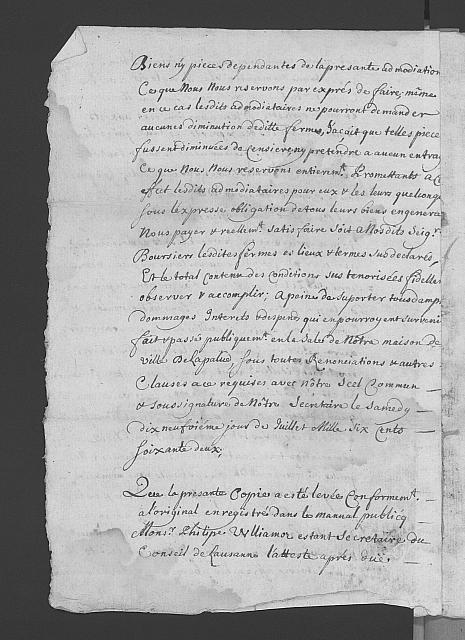 Biens ny pieces dependantes de la presante admodiation
Ce que Nous Nous reservons par exprés de faire; même
en ce cas lesdits admodiataires ne pourront demander
aucunes diminution de ditte fermes, Jaçait que telles piece
fussent diminuées de Censiere, ny prétendre a aucun entrag
Ce que Nous Nous reservons entierem.t Promettants a C
effait lesdits admodiataires pour eux & les leurs quelconq
sous l'expresse obligation de tous leurs biens en genera
Nous payer & reellem.t satisfaire soit a Nosdits Seig.rs
Boursiers lesdites fermes es lieux & termes sus declarés,
Et le total contenu des conditions sus tenorisées fidelle
observer & accomplir; a peine de suporter tous damp
dommages Interets & despends qui en pourroyent surveni
fait & passé publiquem.t en la Sale de Nôtre maison de
ville De la palud, sous toutes Renonciations & autres
Clauses a ce requises avec Nôtre Seel Commun
& sous signature de Nôtre Secretaire le Samedy
dix neufviéme jour de Juillet Mille Six Cents
soixante deux,
Que la presante Copie a esté levée Conformem.t
a l'original enregistré dans le manual public q
Mons.r Philipe Wlliamoz estant Secretaire du
Conseil de Lausanne l'atteste apres due